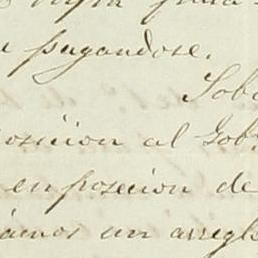 pagandose.
Sob
posicion al Gobº
en posecion de
amos un arregl